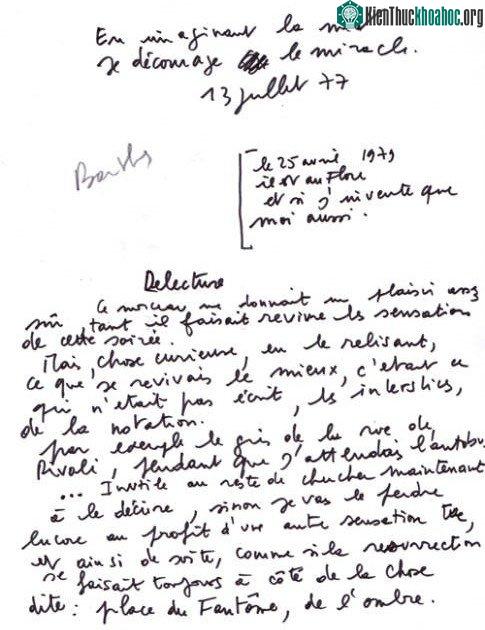 KienThuckhoahoc.org
En imaginant la
je décourage le miracle.
13 juillet 77
Barthes
le 25 avril 1979
il est au Flore
et si j'invente que
moi aussi.
Relecture
Ce morceau me donnait un plaisir assez
sûr tant il faisait revivre les sensations
de cette soirée.
Mais, chose curieuse, en le relisant,
ce que je revivais le mieux, c'était ce
qui n'était pas écrit, les interstices,
de la notation.
par exemple le gris de la rue de
Rivoli, pendant que j'attendais l'autobus
... Inutile au reste de chercher maintenant
à le décrire, sinon je vas le perdre
encore au profit d'une autre sensation tue,
et ainsi de suite, comme si la resurrection
se faisait toujours à côté de la chose
dite : place du Fantôme, de l'ombre.